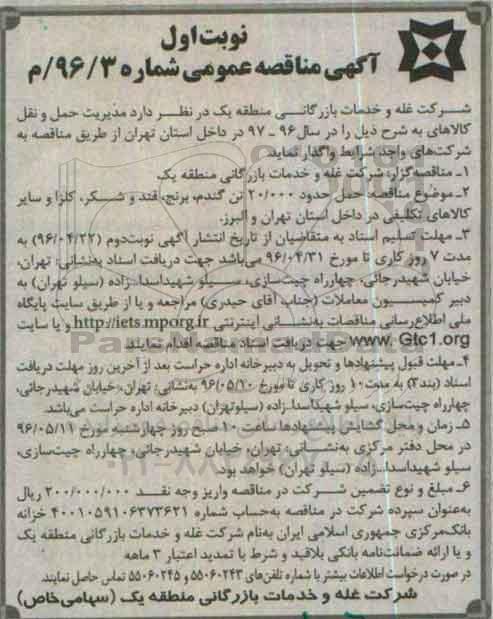 نوبت اول
آگهی مناقصه عمومی شماره ۹۶/۳/م
شرکت غله و خدمات بازرگانی منطقه یک در نظر دارد مدیریت حمل و نقل
کالاهای به شرح ذیل را در سال ۹۶ - ۹۷ در داخل استان تهران از طریق مناقصه به
شرکت‌های واجد شرایط واگذار نماید
۱ـ مناقصه‌گزار: شرکت غله و خدمات بازرگانی منطقه یک
۲ـ موضوع مناقصه: حمل حدود ۲۰/۰۰۰ تن گندم، برنج، قند و شکر، کلزا و سایر
کالاهای تکلیفی در داخل استان تهران و البرز.
۳ـ مهلت تسلیم اسناد به متقاضیان از تاریخ انتشار آگهی نوبت‌دوم (۹۶/۰۴/۲۲) به
مدت ۷ روز کاری تا مورخ ۹۶/۰۴/۳۱ می‌باشد جهت دریافت اسناد به‌نشانی: تهران،
خیابان شهیدرجائی، چهارراه چیت‌سازی، سیلو شهیداسدا..زاده (سیلو تهران) به
دبیر کمیسیون معاملات (جناب آقای حیدری) مراجعه و یا از طریق سایت پایگاه
ملی اطلاع‌رسانی مناقصات به‌نشانی اینترنتی http://iets.mporg.ir و یا سایت
www. Gtc1.org جهت دریافت اسناد مناقصه اقدام نمایند
۴ـ مهلت قبول پیشنهادها و تحویل به دبیرخانه اداره حراست بعد از آخرین روز مهلت دریافت
اسناد (بند۳) به مدت ۱۰ روز کاری تا مورخ ۹۶/۰۵/۱۰ به‌نشانی: تهران، خیابان شهیدرجائی،
چهارراه چیت‌سازی، سیلو شهیداسدا..زاده (سیلوتهران) دبیرخانه اداره حراست می‌باشد.
۵ـ زمان و محل گشایش پیشنهادها ساعت ۱۰ صبح روز چهارشنبه مورخ ۹۶/۰۵/۱۱
در محل دفتر مرکزی به‌نشانی: تهران، خیابان شهیدرجائی، چهارراه چیت‌سازی،
سیلو شهیداسدا..زاده (سیلو تهران) خواهد بود.
۶ـ مبلغ و نوع تضمین شرکت در مناقصه واریز وجه نقد ۲۰۰/۰۰۰/۰۰۰ ریال
به‌عنوان سپرده شرکت در مناقصه به‌حساب شماره ۴۰۰۱۰۵۹۱۰۶۳۷۳۶۲۱ خزانه
بانک‌مرکزی جمهوری اسلامی ایران به‌نام شرکت غله و خدمات بازرگانی منطقه یک
و یا ارائه ضمانت‌نامه بانکی بلاقید و شرط با تمدید اعتبار ۳ ماهه
در صورت درخواست اطلاعات بیشتر با شماره تلفن‌های ۵۵۰۶۰۲۴۳ و ۵۵۰۶۰۲۴۵ تماس حاصل نمایند
شرکت غله و خدمات بازرگانی منطقه یک (سهامی‌خاص)